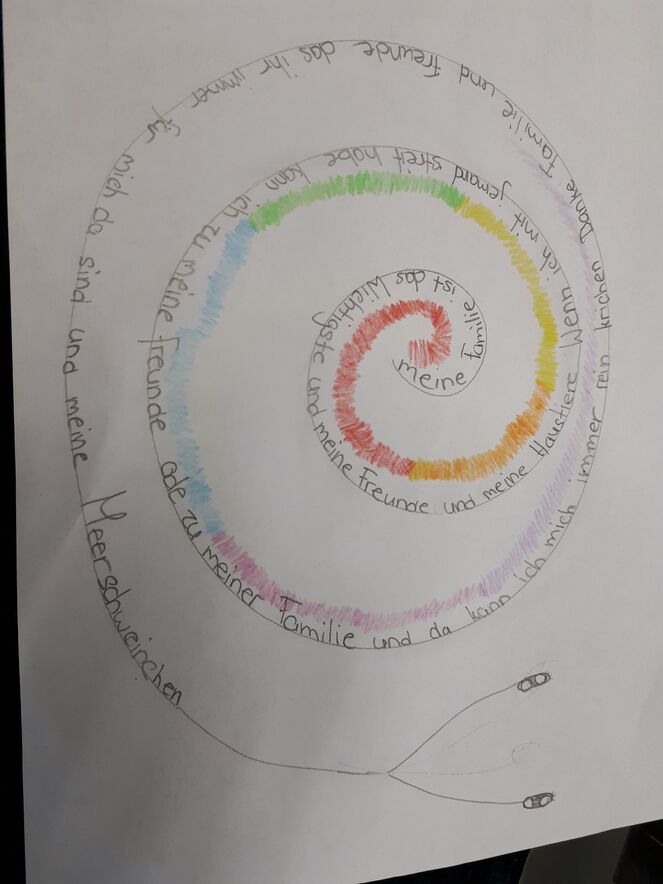 meine Familie ist das Wichtigste und meine Freunde und meine Haustiere Wenn ich mit jemand streit habe kann ich zu meine freunde ode zu meiner Familie und da kann ich mich immer rein krichen Danke Familie und freunde das ihr immer für mich da sind und meine Meerschweinchen